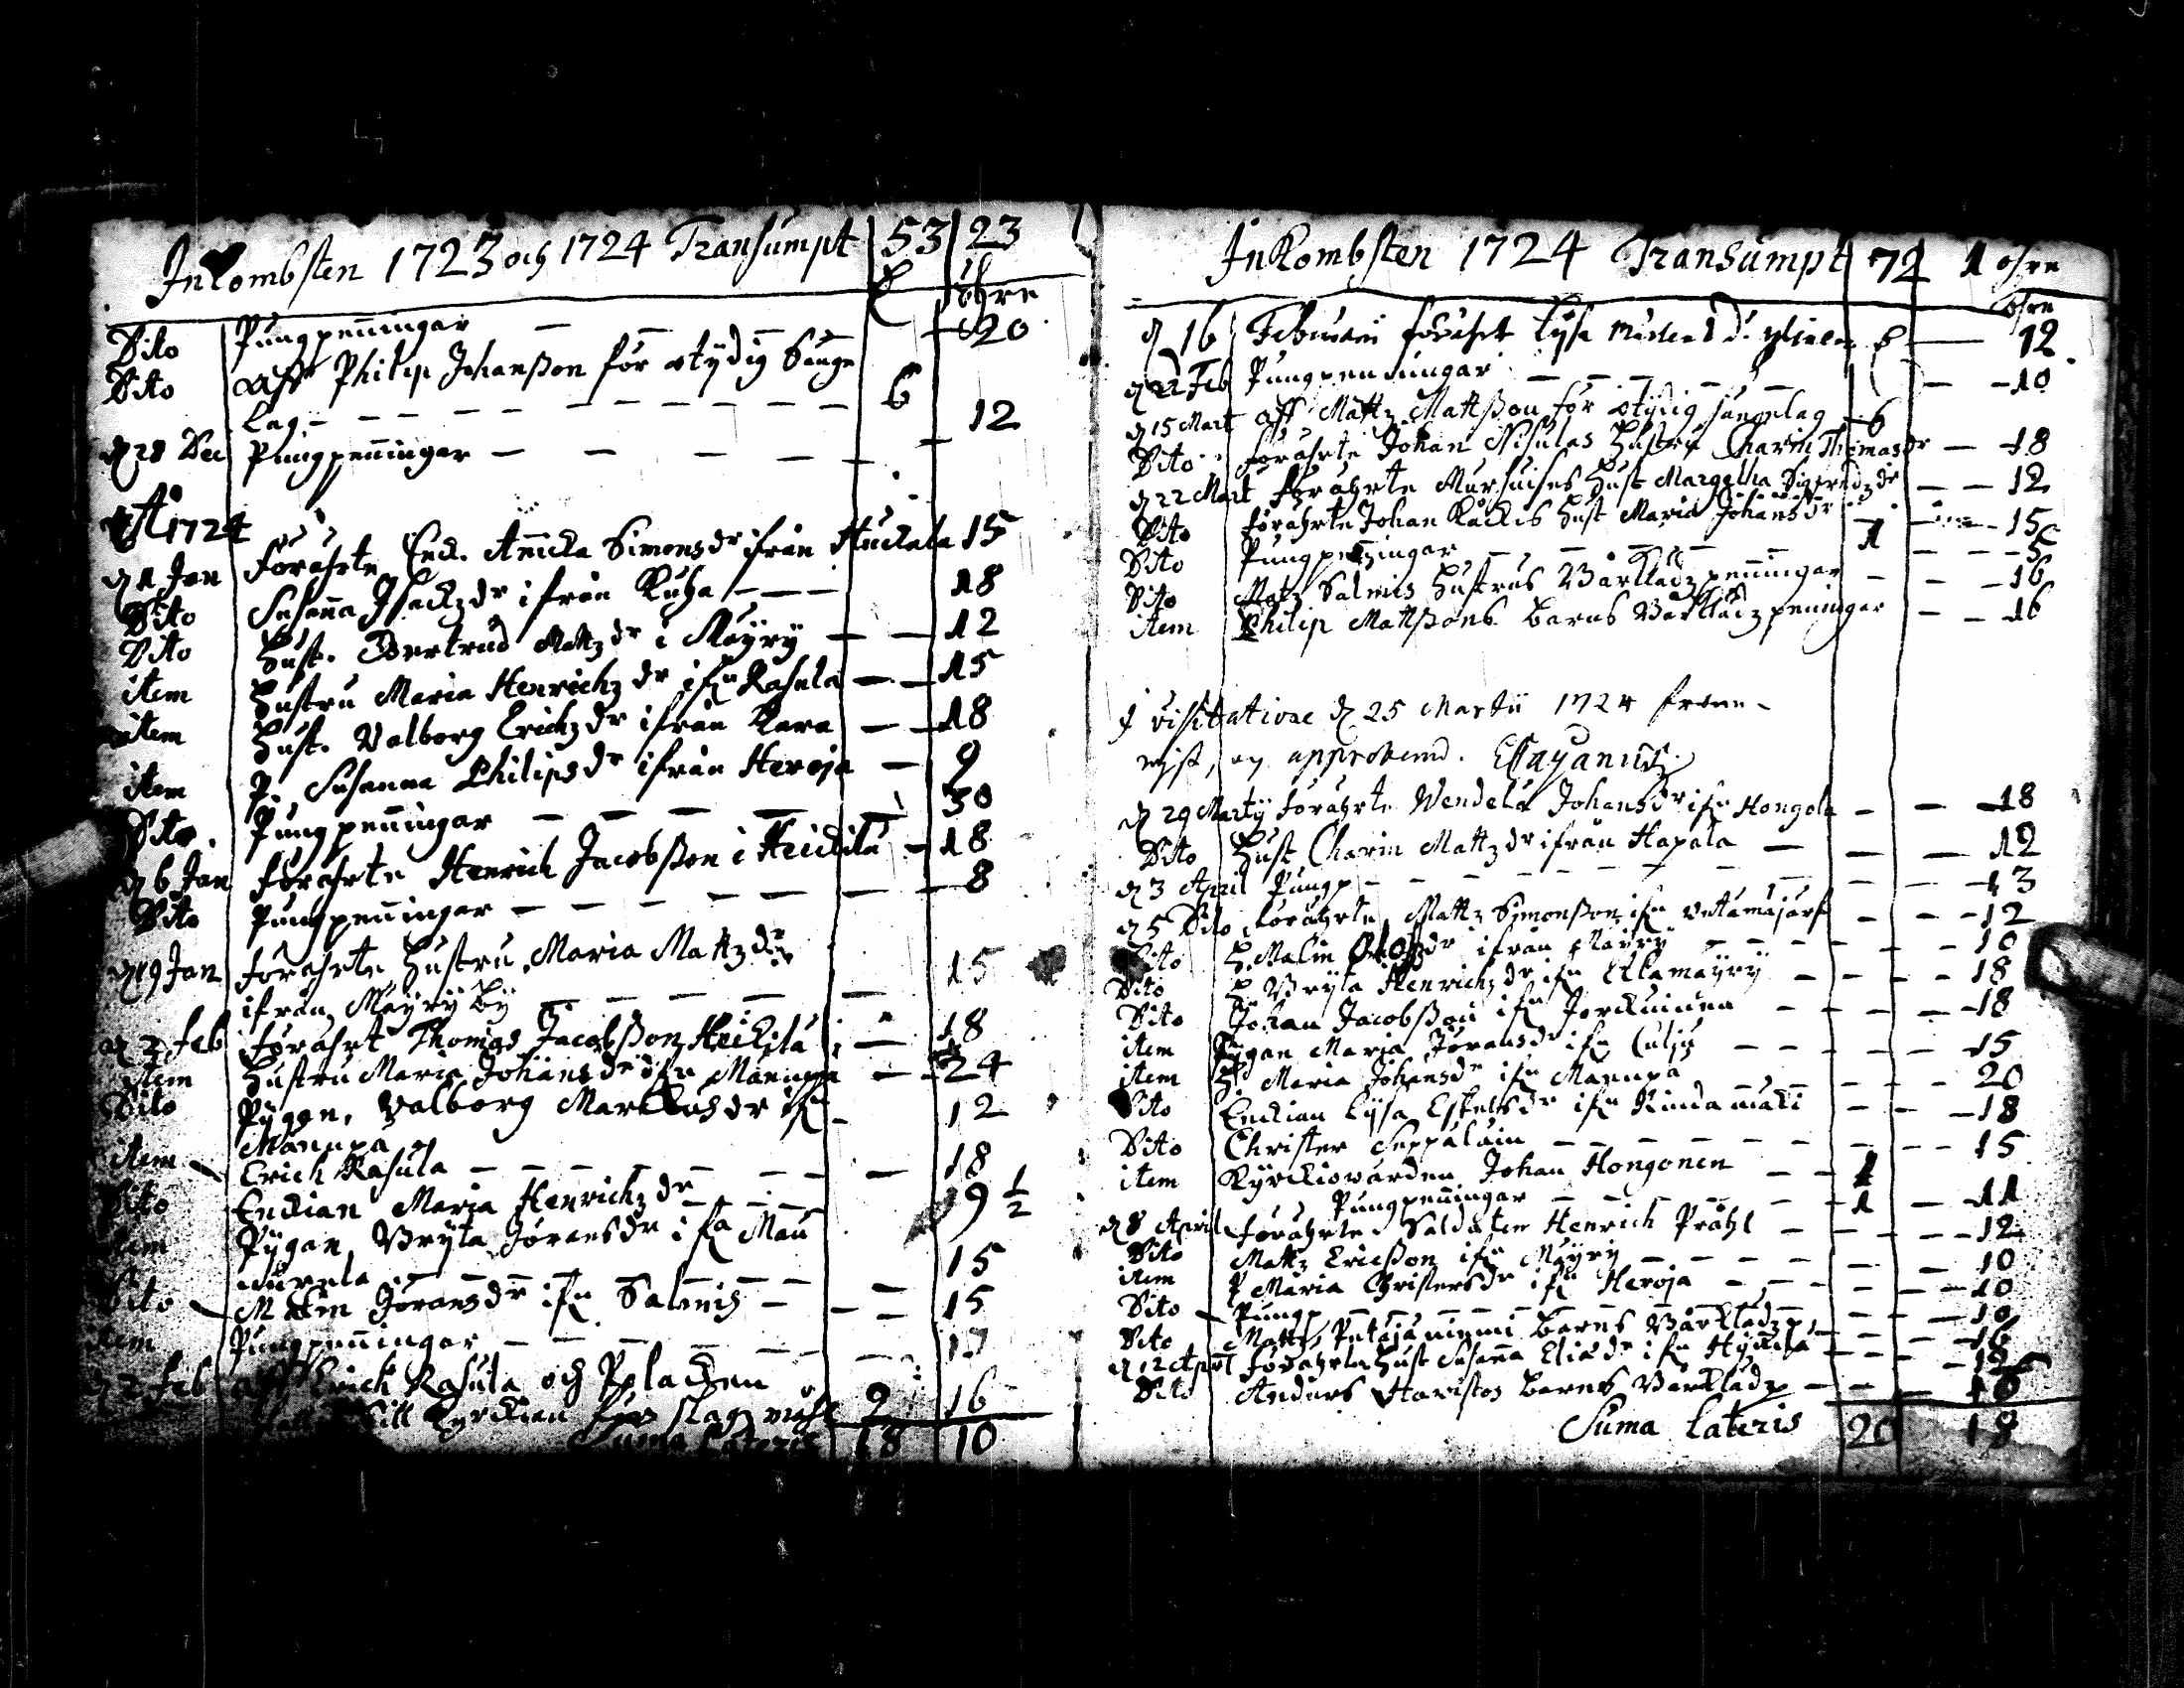 Inkombsten 1723 och 1724 Transumpt 53 23
öhre
Dito Pungpenningar — — — — 20
Dito aff Philip Johanßon för otydig Sänge
lag — — — — — — — — 6
d 28 Dec Pungpenningar — — — — — 12
A 1724
d 1 Jan Förährte Enck. Annicka Simonsdr ifrån Huckala 15
Dito Susanna Isackzdr ifrån Kuha — — — 18
Dito Hust. Bertrud Mattzdr i Mäyry — — 12
item Hustru Maria Henrichzdr ifrn Rasula — — 15
item Hust. Valborg Erichzdr ifrån Kara — — 18
item P. Susanna Philipsdr ifrån Heroja — 9
Dito Pungpenningar — — — — — 30
d 6 Jan Förährte Henrich Jacobßon i Heickilä — 18
Dito Pungpenningar — — — — — — 8
d 19 Jan Förährte Hustru Maria Mattzdr
ifrån Mäyry by — — — — — 15
d 2 Feb Förährt Thomas Jacobßon Heickilä — 18
item Hustru Maria Johansdr ifrn Mannpa — 24
Dito Pygan, Valborg Marckusdr ifrn
Mannpa — 12
item Erich Rasula — — — — — — — 18
Dito Enckian Maria Henrichzdr — — — 19 1/2
item Pygan, Bryta Joransdr ifrn Mau
nurela — — — — — — — 15
Dito Malin Joransdr ifrn Salmis — — — 15
item Pungpenningar — — — — — — 17
d 2 Feb aff Erich Rasula och
till Kyrckian för slag 9 16
Suma Lateris 18 10
Inkombsten 1724 Transumpt 72 1 öhre
öhre
d 16 Februarii förährt Lysa — 12
d 22 Feb Pungpenningar — — — — — — 10
d 15 Mart aff Mattz Mattßon för otydig sängelag — 6
Dito förährte Johan Nisulas Hustru Charin Thomasdr — 18
d 22 Mart förährte Hust Margetha Sigfredzdr — — 12
Dito förährte Johan Käckis Hust Maria Johansdr — — 15
Dito Pungpenningar — — — — — 1 — — 5
Dito Matz Salmis Hustrus Bårklädz penningar — — 16
item Philip Mattßons barns Bårklädz peningar — — 16
I visitatione d 25 Martii 1724
och approberad.
d 29 Martij Förährte Wendela Johansdr ifrn Hongola — — 18
Dito Hust Charin Mattzdr ifrån Hapala — — — 12
d 3 April Pungp — — — — — — — — 13
d 5 Dito Förährte, Mattz Simonßon ifrn Vetämäjärf — — 12
Dito H. Malin Olofzdr ifrån Mäyry — — — — 10
Dito H Bryta Henrichzdr ifrn Allamäyry — — — — 18
Dito Johan Jacobßon ifrn — — — — 18
item Pygan Maria Joransdr ifrn — — — — — 15
item H Maria Johansdr ifrn Mannpa — — — — — 20
Dito Enckian Lysa Eskelsdr ifrn Rindamäki — — — 18
Dito Christer Seppäläin — — — — — — — — 15
item Kyrckiowärden Johan Hongonen — — 1
Pungpenningar — — — — — 1 — 11
d 8 April förährte Saldaten Henrich Prähl — — — — 12
Dito Mattz Ericßon ifrn Mäyry — — — — — — 10
item P Maria Christersdr ifrn Heroja — — — — — 10
Dito Pungp — — — — — — — — 10
Dito Mattz barns Bårklädz p — — — — 16
d 12 April förährte Hust Susanna Eliædr ifrn — — — 18
Dito Anders barns Bårklädz p — — — 16
Suma Lateris 20 18